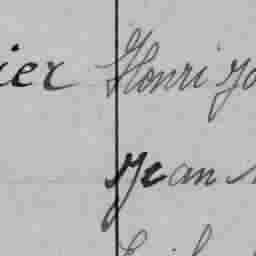 ier Henri Jo
Jean